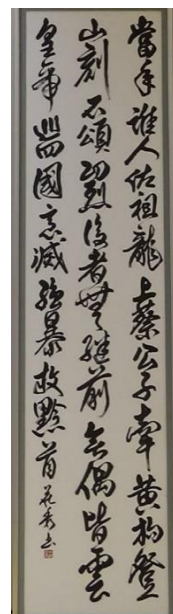 當年誰人佐祖龍上蔡公子牽黃狗登
山刻石頌功烈後者無繼前無偶皆雲
皇帝巡四國烹滅強暴救黔首花香書